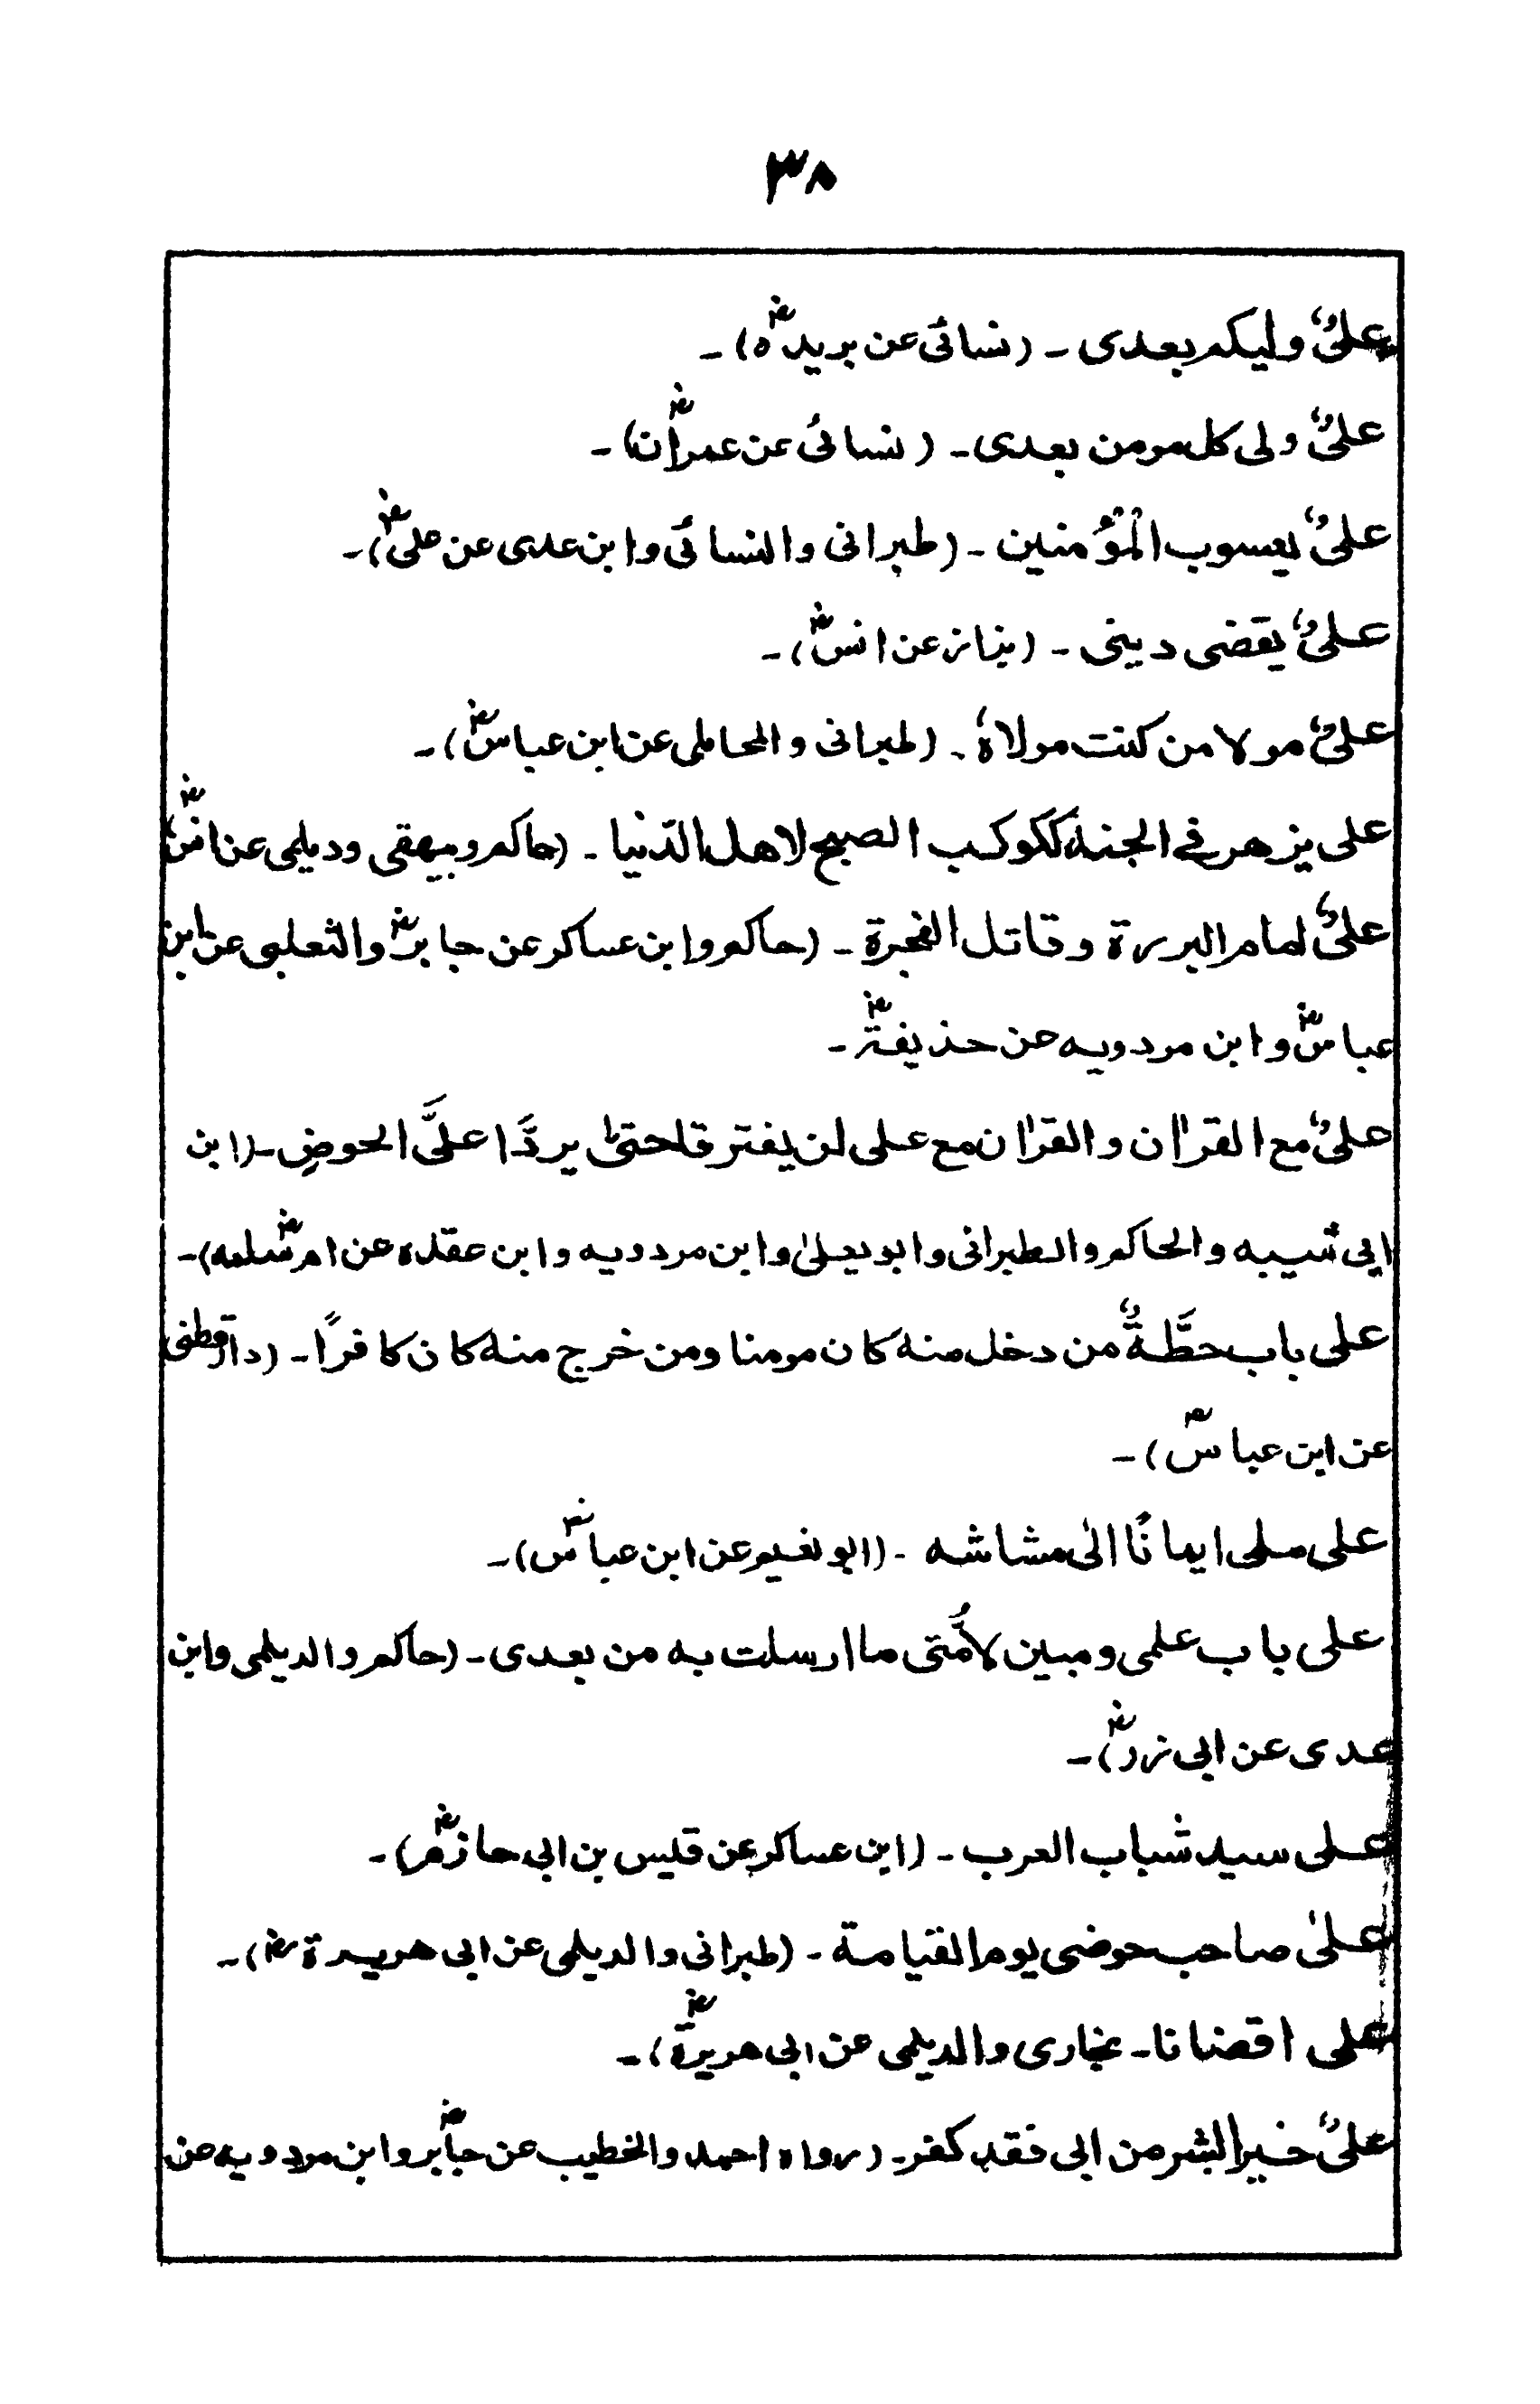 ۳۸
علیٌ ولیکم بعدی ۔ (نسائی عن بریدہؓ)۔
علیٌ ولی کل مومن بعدی۔ (نسائی عن عمرانؓ)۔
علیٌ یعسوب الْمُؤمنین ۔ (طبرانی والنسائی وابن عدی عن علیؓ)۔
علیٌ یقضی دینی ۔ (بزاز عن انسؓ)۔
علیٌ مولا من کنت مولاہُ ۔ (طبرانی والمحاملی عن ابن عباسؓ)۔
علی یزهر فی الجنة ککوکب الصبح لاهل الدّنیا ۔ (حاکم وبیهقی ودیلمی عن انسؓ)
علیٌ امام البررة وقاتل الفجرة ۔ (حاکم وابن عساکر عن جابرؓ والثعلبی عن ابن
عباسؓ وابن مردویہ عن حذیفةؓ۔
علیٌ مع القرٰان والقرٰان مع علی لن یفترقا حتیٰ یردَّا علَیَّ الحوضِ۔ (ابن
ابی شیبہ والحاکم والطبرانی وابویعلیٰ وابن مردویہ وابن عقدہ عن ام سلمہؓ)۔
علی باب حطَّةٌ من دخل منه کان مومنا ومن خرج منه کان کافرًا۔ (دارقطنی
عن ابن عباسؓ)۔
علی ملی ایمانًا الیٰ مشاشہ ۔ (ابونعیم عن ابن عباسؓ)۔
علی باب علمی ومبین لاُمّتی ما ارسلت به من بعدی ۔ (حاکم والدیلمی وابن
عدی عن ابی زرؓ)۔
علی سید شباب العرب ۔ (ابن عساکر عن قیس بن ابی حازمؓ)۔
علیٰ صاحب حوضی یوم القیامة ۔ (طبرانی والدیلمی عن ابی هریرةؓ)۔
علی اقضانا۔ بخاری والدیلمی عن ابی هریرةؓ)۔
علیٌ خیر البشر من ابی فقد کفر۔ (رواہ احمد والخطیب عن جابرؓ وابن مردویہ عن